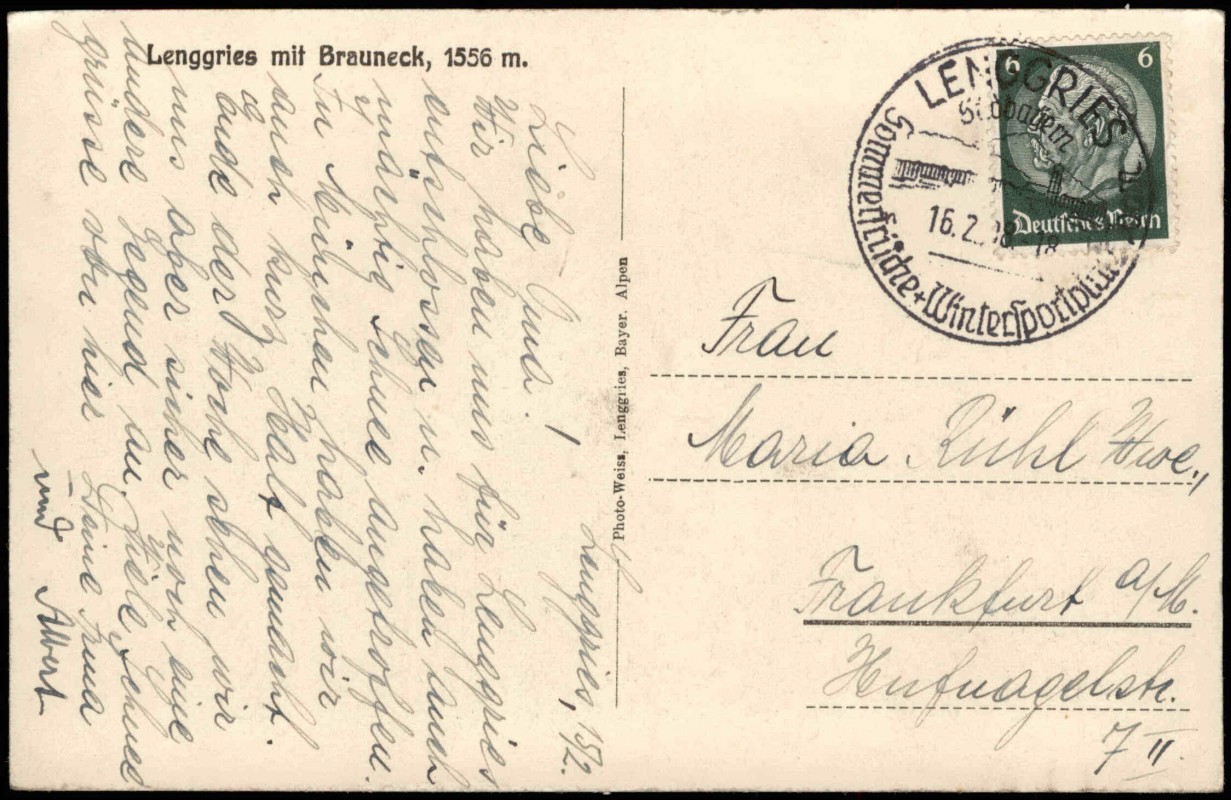 Lenggries mit Brauneck, 1556 m.
Lenggries, 15/2.
Liebe Anna!
Wir haben uns für Lenggries
entschlossen u. haben auch
prächtig Schnee angetroffen.
In München haben wir
auch kurz Halt gemacht.
Ende der Woche sehen wir
uns aber sicher noch eine
andere Gegend an. Viele Schnee
grüsse von hier Deine Irma
und Albert
Photo-Weiss, Lenggries, Bayer. Alpen
LENGGRIES
Südbayern
16.2.38 18
Sommerfrische + Wintersportplatz
6 6
Deutsches Reich
Frau
Maria Rühl Wwe.,
Frankfurt a/M.
Hufnagelstr.
7 II.